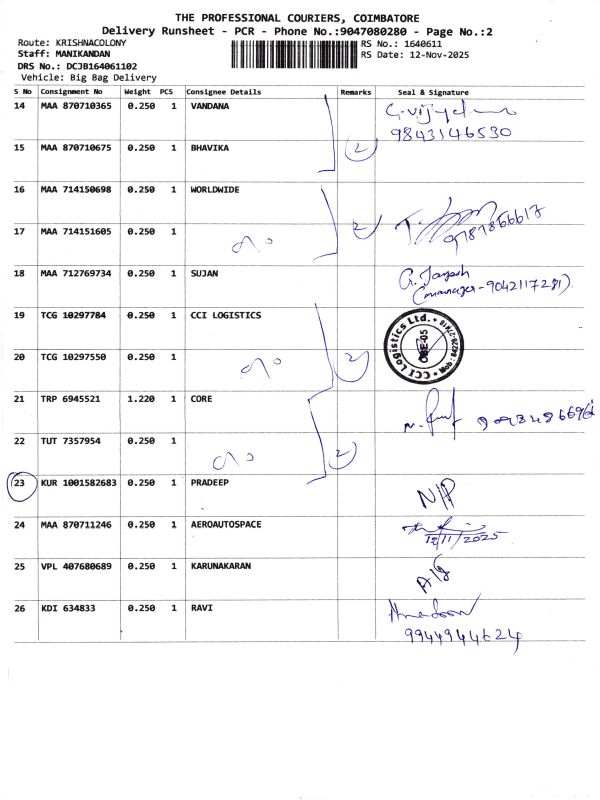 THE PROFESSIONAL COURIERS, COIMBATORE
Delivery Runsheet - PCR - Phone No.:9047080280 - Page No.:2
Route: KRISHNACOLONY RS No.: 1640611
Staff: MANIKANDAN RS Date: 12-Nov-2025
DRS No.: DCJB164061102
Vehicle: Big Bag Delivery
S No Consignment No Weight PCS Consignee Details Remarks Seal & Signature
14 MAA 870710365 0.250 1 VANDANA
9843146530
15 MAA 870710675 0.250 1 BHAVIKA 2
16 MAA 714150698 0.250 1 WORLDWIDE
17 MAA 714151605 0.250 1 2
18 MAA 712769734 0.250 1 SUJAN G. Jayesh
(manager-9042117281)
19 TCG 10297784 0.250 1 CCI LOGISTICS
CCI Logistics Ltd.
20 TCG 10297550 0.250 1 2
21 TRP 6945521 1.220 1 CORE
22 TUT 7357954 0.250 1 2
23 KUR 1001582683 0.250 1 PRADEEP N/P
24 MAA 870711246 0.250 1 AEROAUTOSPACE
12/11/2025
25 VPL 407680689 0.250 1 KARUNAKARAN
26 KDI 634833 0.250 1 RAVI
9944944624